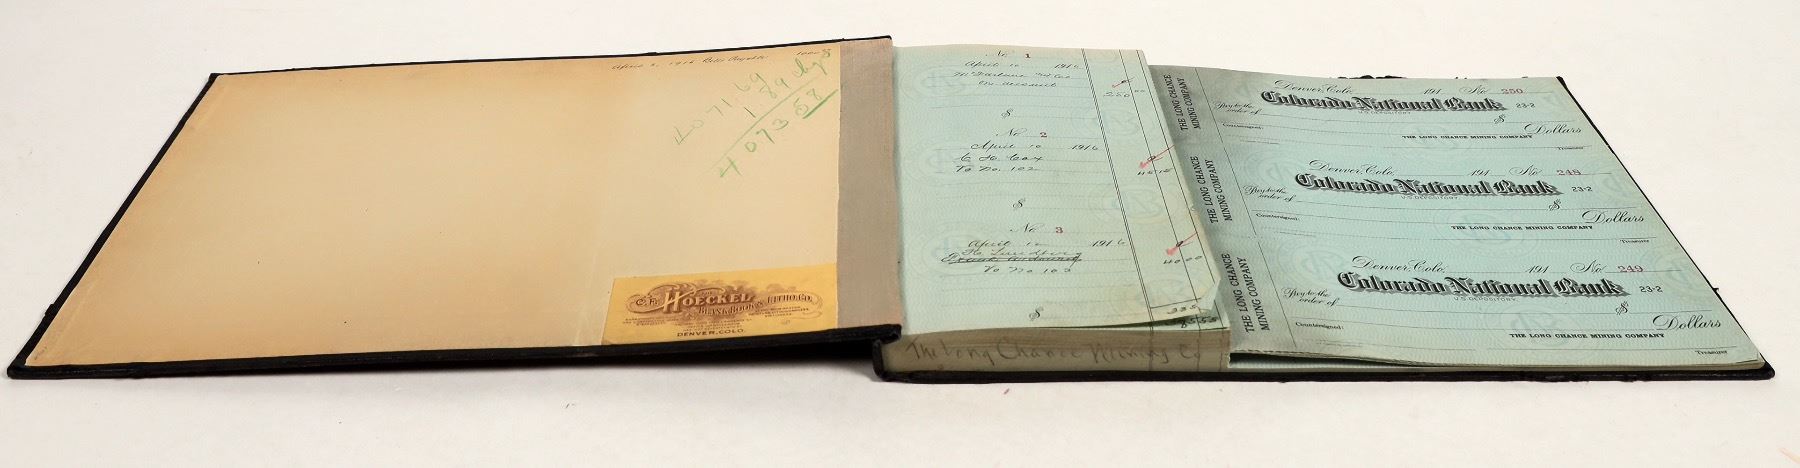 April 8, 1916 Bills Payable 1000
4071.69
1.89 chgs
4073.58
THE
C.F. HOECKEL
BLANK BOOK & LITHO. CO.
DENVER, COLO.
No 1
April 10 1916
on account
250 00
$
No. 2
April 10 1916
C H Cox
To No. 102
$
No. 3
April 10 1916
Lundberg
To No 103
40 00
$
The Long Chance Mining Co
THE LONG CHANCE
MINING COMPANY
Denver, Colo. 191 No 250
Pay to the
order of
Colorado National Bank 23-2
U.S. DEPOSITORY
$
Dollars
Countersigned:
THE LONG CHANCE MINING COMPANY
Treasurer
THE LONG CHANCE
MINING COMPANY
Denver, Colo. 191 No 248
Pay to the
order of
Colorado National Bank 23-2
U.S. DEPOSITORY
$
Dollars
Countersigned:
THE LONG CHANCE MINING COMPANY
Treasurer
THE LONG CHANCE
MINING COMPANY
Denver, Colo. 191 No 249
Pay to the
order of
Colorado National Bank 23-2
U.S. DEPOSITORY
$
Dollars
Countersigned:
THE LONG CHANCE MINING COMPANY
Treasurer